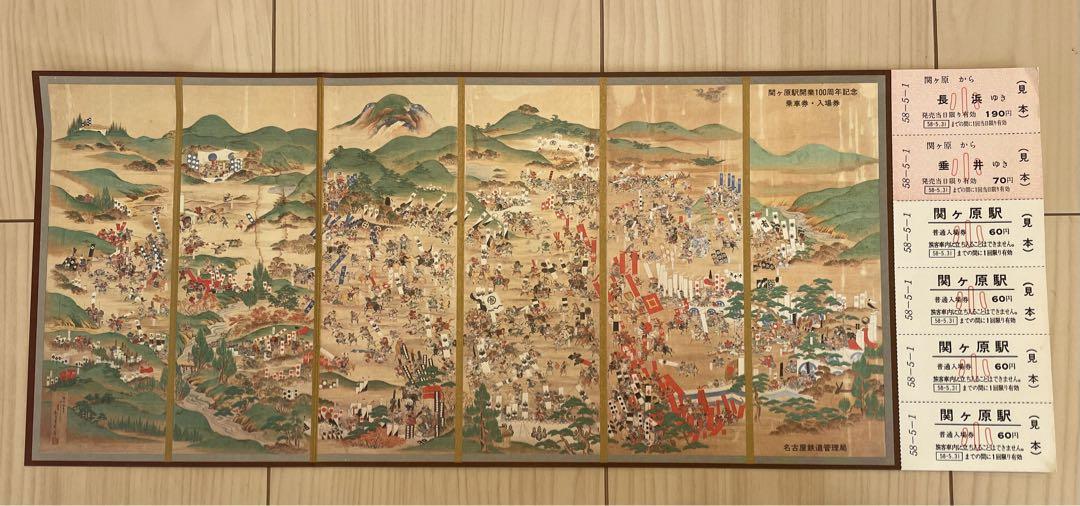 関ヶ原駅開業100周年記念
乗車券・入場券
名古屋鉄道管理局
58-5-1
関ヶ原 から
長浜 ゆき
発売当日限り有効 190円
58-5.31 までの間に1回当日限り有効
(見本)
58-5-1
関ヶ原 から
垂井 ゆき
発売当日限り有効 70円
58-5.31 までの間に1回当日限り有効
(見本)
58-5-1
関ヶ原駅
普通入場券 60円
旅客車内に立ち入ることはできません。
58-5.31 までの間に1回限り有効
(見本)
58-5-1
関ヶ原駅
普通入場券 60円
旅客車内に立ち入ることはできません。
58-5.31 までの間に1回限り有効
(見本)
58-5-1
関ヶ原駅
普通入場券 60円
旅客車内に立ち入ることはできません。
58-5.31 までの間に1回限り有効
(見本)
58-5-1
関ヶ原駅
普通入場券 60円
旅客車内に立ち入ることはできません。
58-5.31 までの間に1回限り有効
(見本)